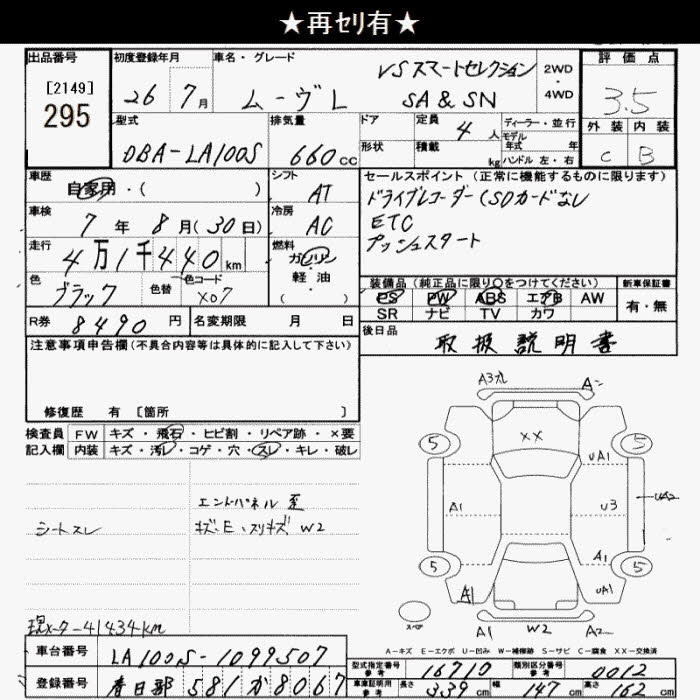 ★再ｾﾘ有★
出品番号 初度登録年月 車名・グレード 評価点
[2149]
295
26 7月 ムーヴL VS スマートセレクション SA & SN 2WD・4WD
3.5
型式 排気量 ドア 定員 4人 ディーラー・並行 外装 内装
モデル年式 年
DBA-LA100S 660cc 形状 積載 kg ハンドル 左・右 C B
車歴 自家用・( ) シフト AT セールスポイント(正常に機能するものに限ります)
ドライブレコーダー(SDカードなし
車検 7年8月(30日) 冷房 AC ETC
プッシュスタート
走行 4万1千440km 燃料 ガソリン・軽油( )
色 ブラック 色替 色コード X07 装備品(純正品に限り○をつけてください) 新車保証書
PS PW ABS エアB AW 有・無
SR ナビ TV カワ
R券 8490円 名変期限 月 日 後日品 取扱説明書
注意事項申告欄(不具合内容等は具体的に記入して下さい)
修復歴 有 [箇所 ]
検査員 FW キズ・飛石・ヒビ割・リペア跡・×要
記入欄 内装 キズ・汚レ・コゲ・穴・スレ・キレ・破レ
エンドパネル 歪
シートスレ キズ・E・スリキズ W2
現メーター41434km
A3 A
XX
5 5
UA1
A1 U3 UA2
A1
5 5
A1 UA1
スペア
A1 W2 A2
A-キズ E-エクボ U-凹み W-補修跡 S-サビ C-腐食 XX-交換済
車台番号 LA100S-1099507 型式指定番号 参考 16710 類別区分番号 参考 0012
登録番号 春日部 581 か 8067 車庫証明用 参考 長さ 339cm 幅 147cm 高さ 162cm